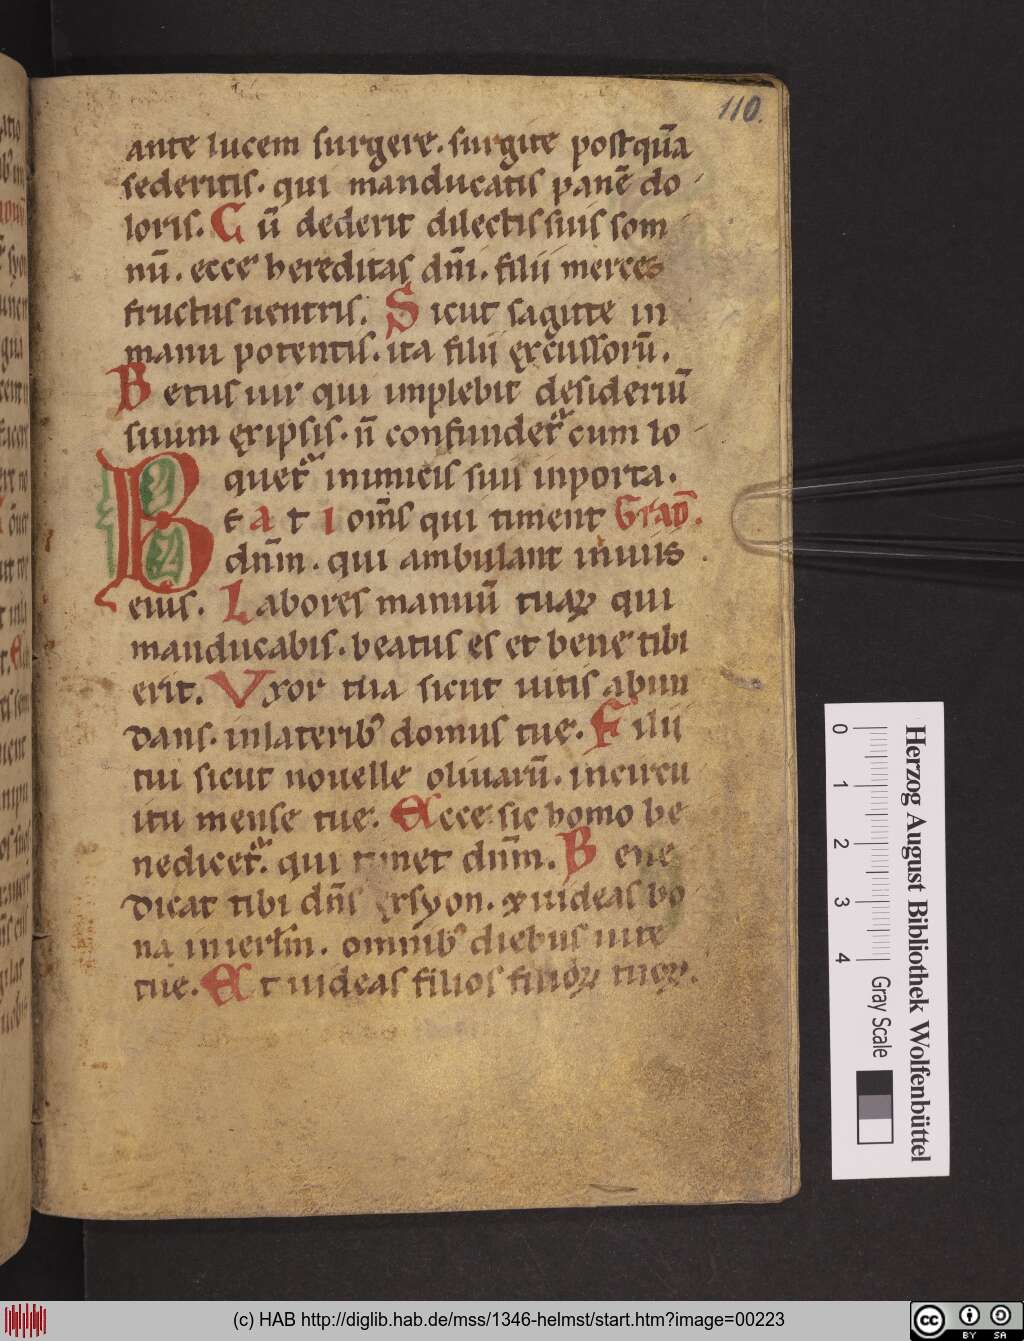 110.
ante lucem surgere. surgite postquā
sederitis. qui manducatis panē do
loris. Cū dederit dilectis suis som
nū. ecce hereditas dn̄i. filii merces
fructus uentris. Sicut sagitte in
manu potentis. ita filii excussorū.
Betus uir qui implebit desideriū
suum ex ipsis. n̄ confundet᷑ cum lo
quet᷑ inimicis suis in porta.
BEati om̄s qui timent Grad̄.
dn̄m. qui ambulant in uiis
eius. Labores manuū tuaꝝ qui
manducabis. beatus es et bene tibi
erit. Vxor tua sicut uitis abun
dans. in laterib᷒ domus tue. Filii
tui sicut nouelle oliuarū. in circu
itu mense tue. Ecce sic homo be
nedicet᷑. qui timet dn̄m. Bene
dicat tibi dn̄s ex syon. & uideas bo
na in ierl̄m. omnib᷒ diebus uite
tue. Et uideas filios filioꝝ tuoꝝ.
Herzog August Bibliothek Wolfenbüttel
0 1 2 3 4 Gray Scale
(c) HAB http://diglib.hab.de/mss/1346-helmst/start.htm?image=00223
cc BY SA